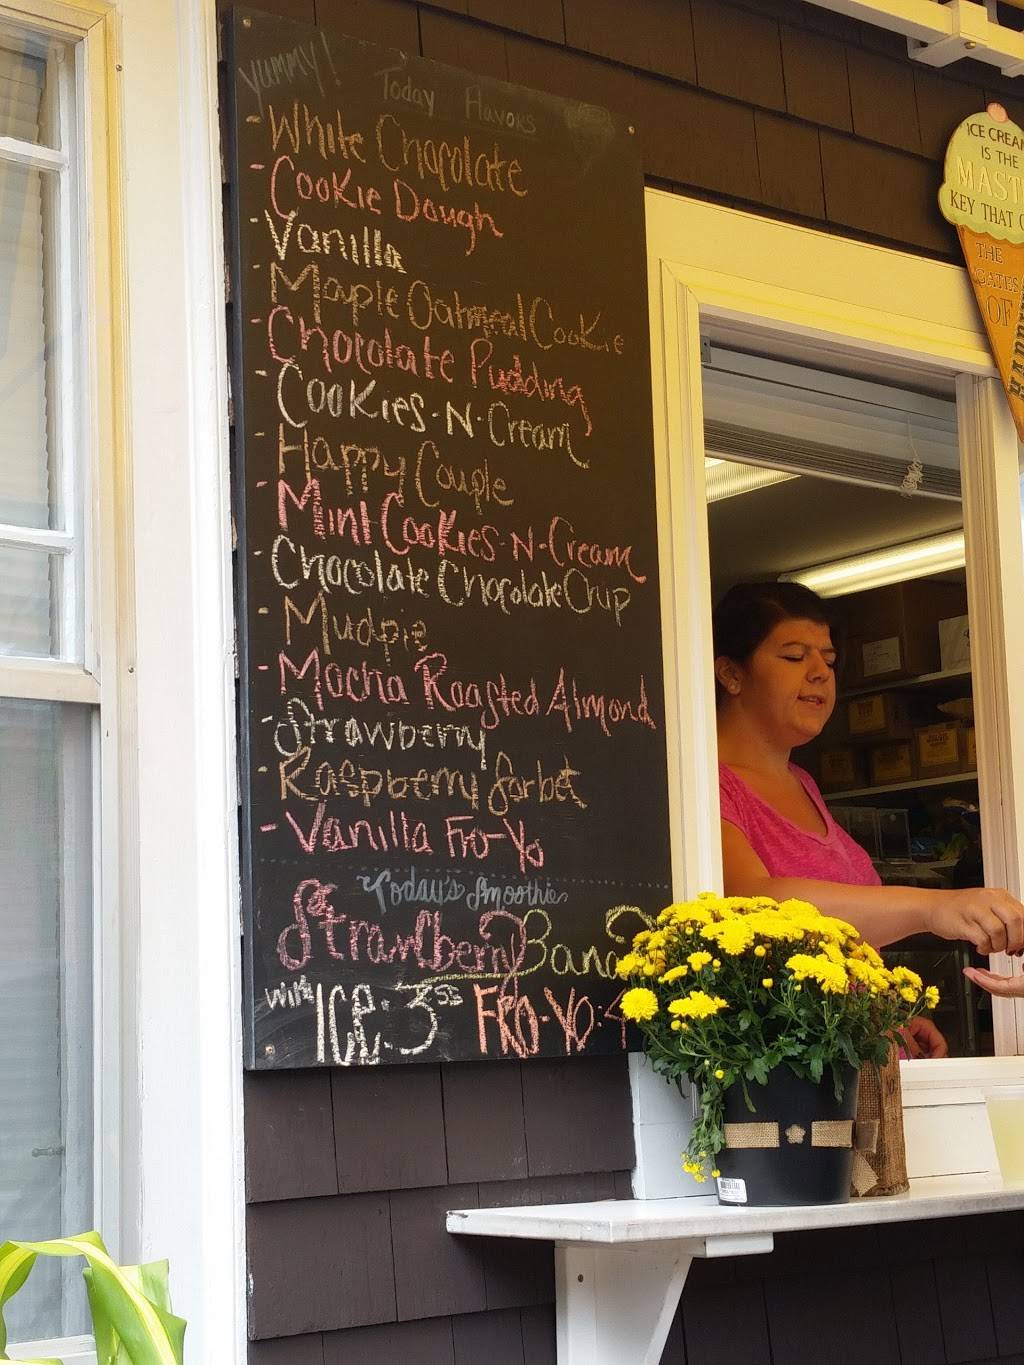 yummy!
Today Flavors
- White Chocolate
- Cookie Dough
- Vanilla
- Maple Oatmeal Cookie
- Chocolate Pudding
- Cookies-N-Cream
- Happy Couple
- Mint Cookies-N-Cream
- Chocolate Chocolate Chip
- Mudpie
- Mocha Roasted Almond
- Strawberry
- Raspberry Sorbet
- Vanilla Fro-Yo
Today's Smoothie
Strawberry Bana
with ICE: 3 Fro-Yo: 4
ICE CREAM
IS THE
MAST
KEY THAT
THE
GATES
OF